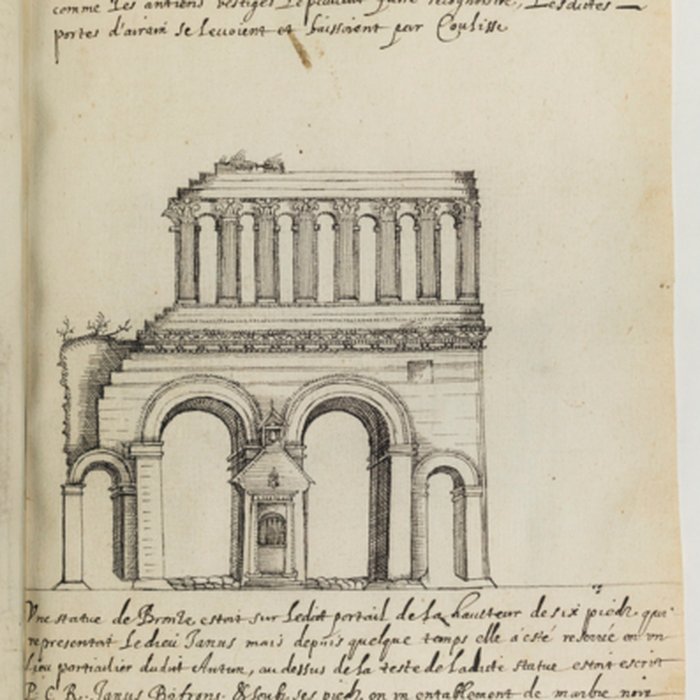 comme les antiens vestiges le peuvent faire recognoistre, Lesdictes
portes d'airain se levoient et baissoient par Coulisse
Vne statue de Bronze estoit sur Ledict portail de la haulteur de six piedz qui
representoit Le dieu Janus mais depuis quelque temps elle a esté reserrée en vn
lieu particulier dudit Autun, au dessus de la teste de ladicte statue estoit escrit
P. C. R. Janus Bifrons & soubz ses piedz en vn entablement de marbre noir